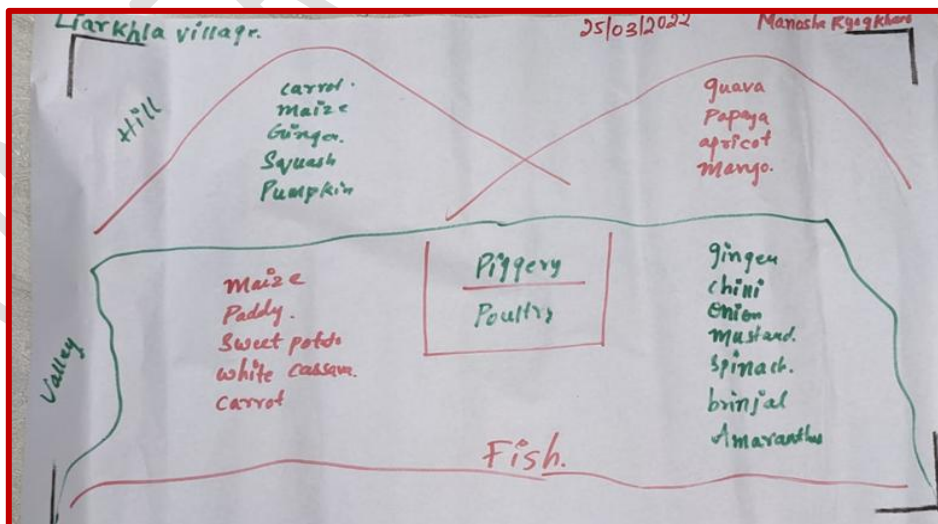 Liarkhla village.
25/03/2022
Manosha
Hill
carrot.
maize
Ginger.
Squash
Pumpkin
guava
Papaya
apricot
Mango.
Valley
maize
Paddy.
Sweet potato
white cassava.
carrot
Piggery
Poultry
ginger
chilli
onion
mustard.
Spinach.
brinjal
Amaranthus
Fish.